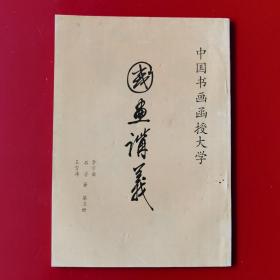 中国书画函授大学
国画讲义